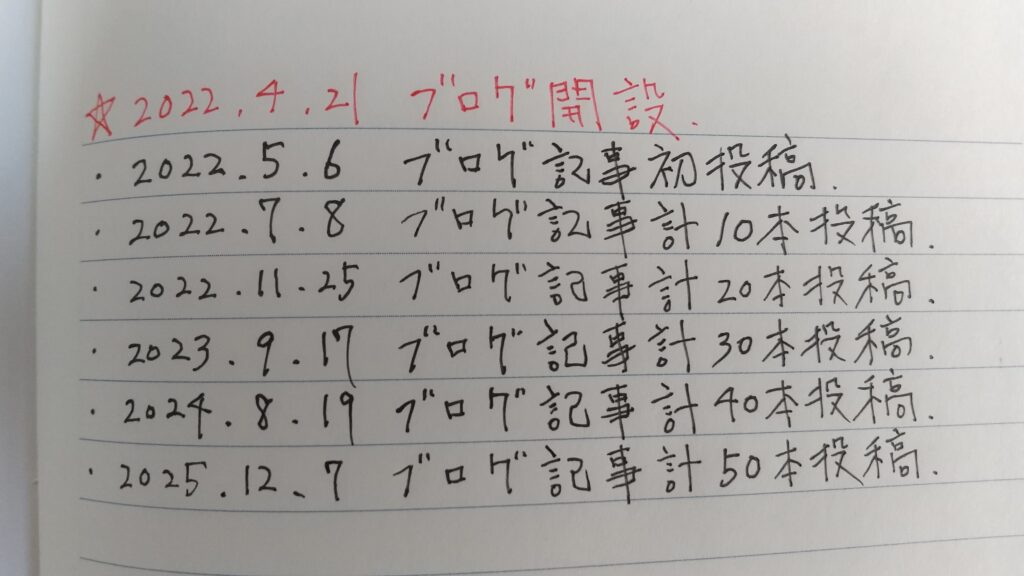 ☆2022.4.21 ブログ開設.
・2022.5.6 ブログ記事初投稿.
・2022.7.8 ブログ記事計10本投稿.
・2022.11.25 ブログ記事計20本投稿.
・2023.9.17 ブログ記事計30本投稿.
・2024.8.19 ブログ記事計40本投稿.
・2025.12.7 ブログ記事計50本投稿.